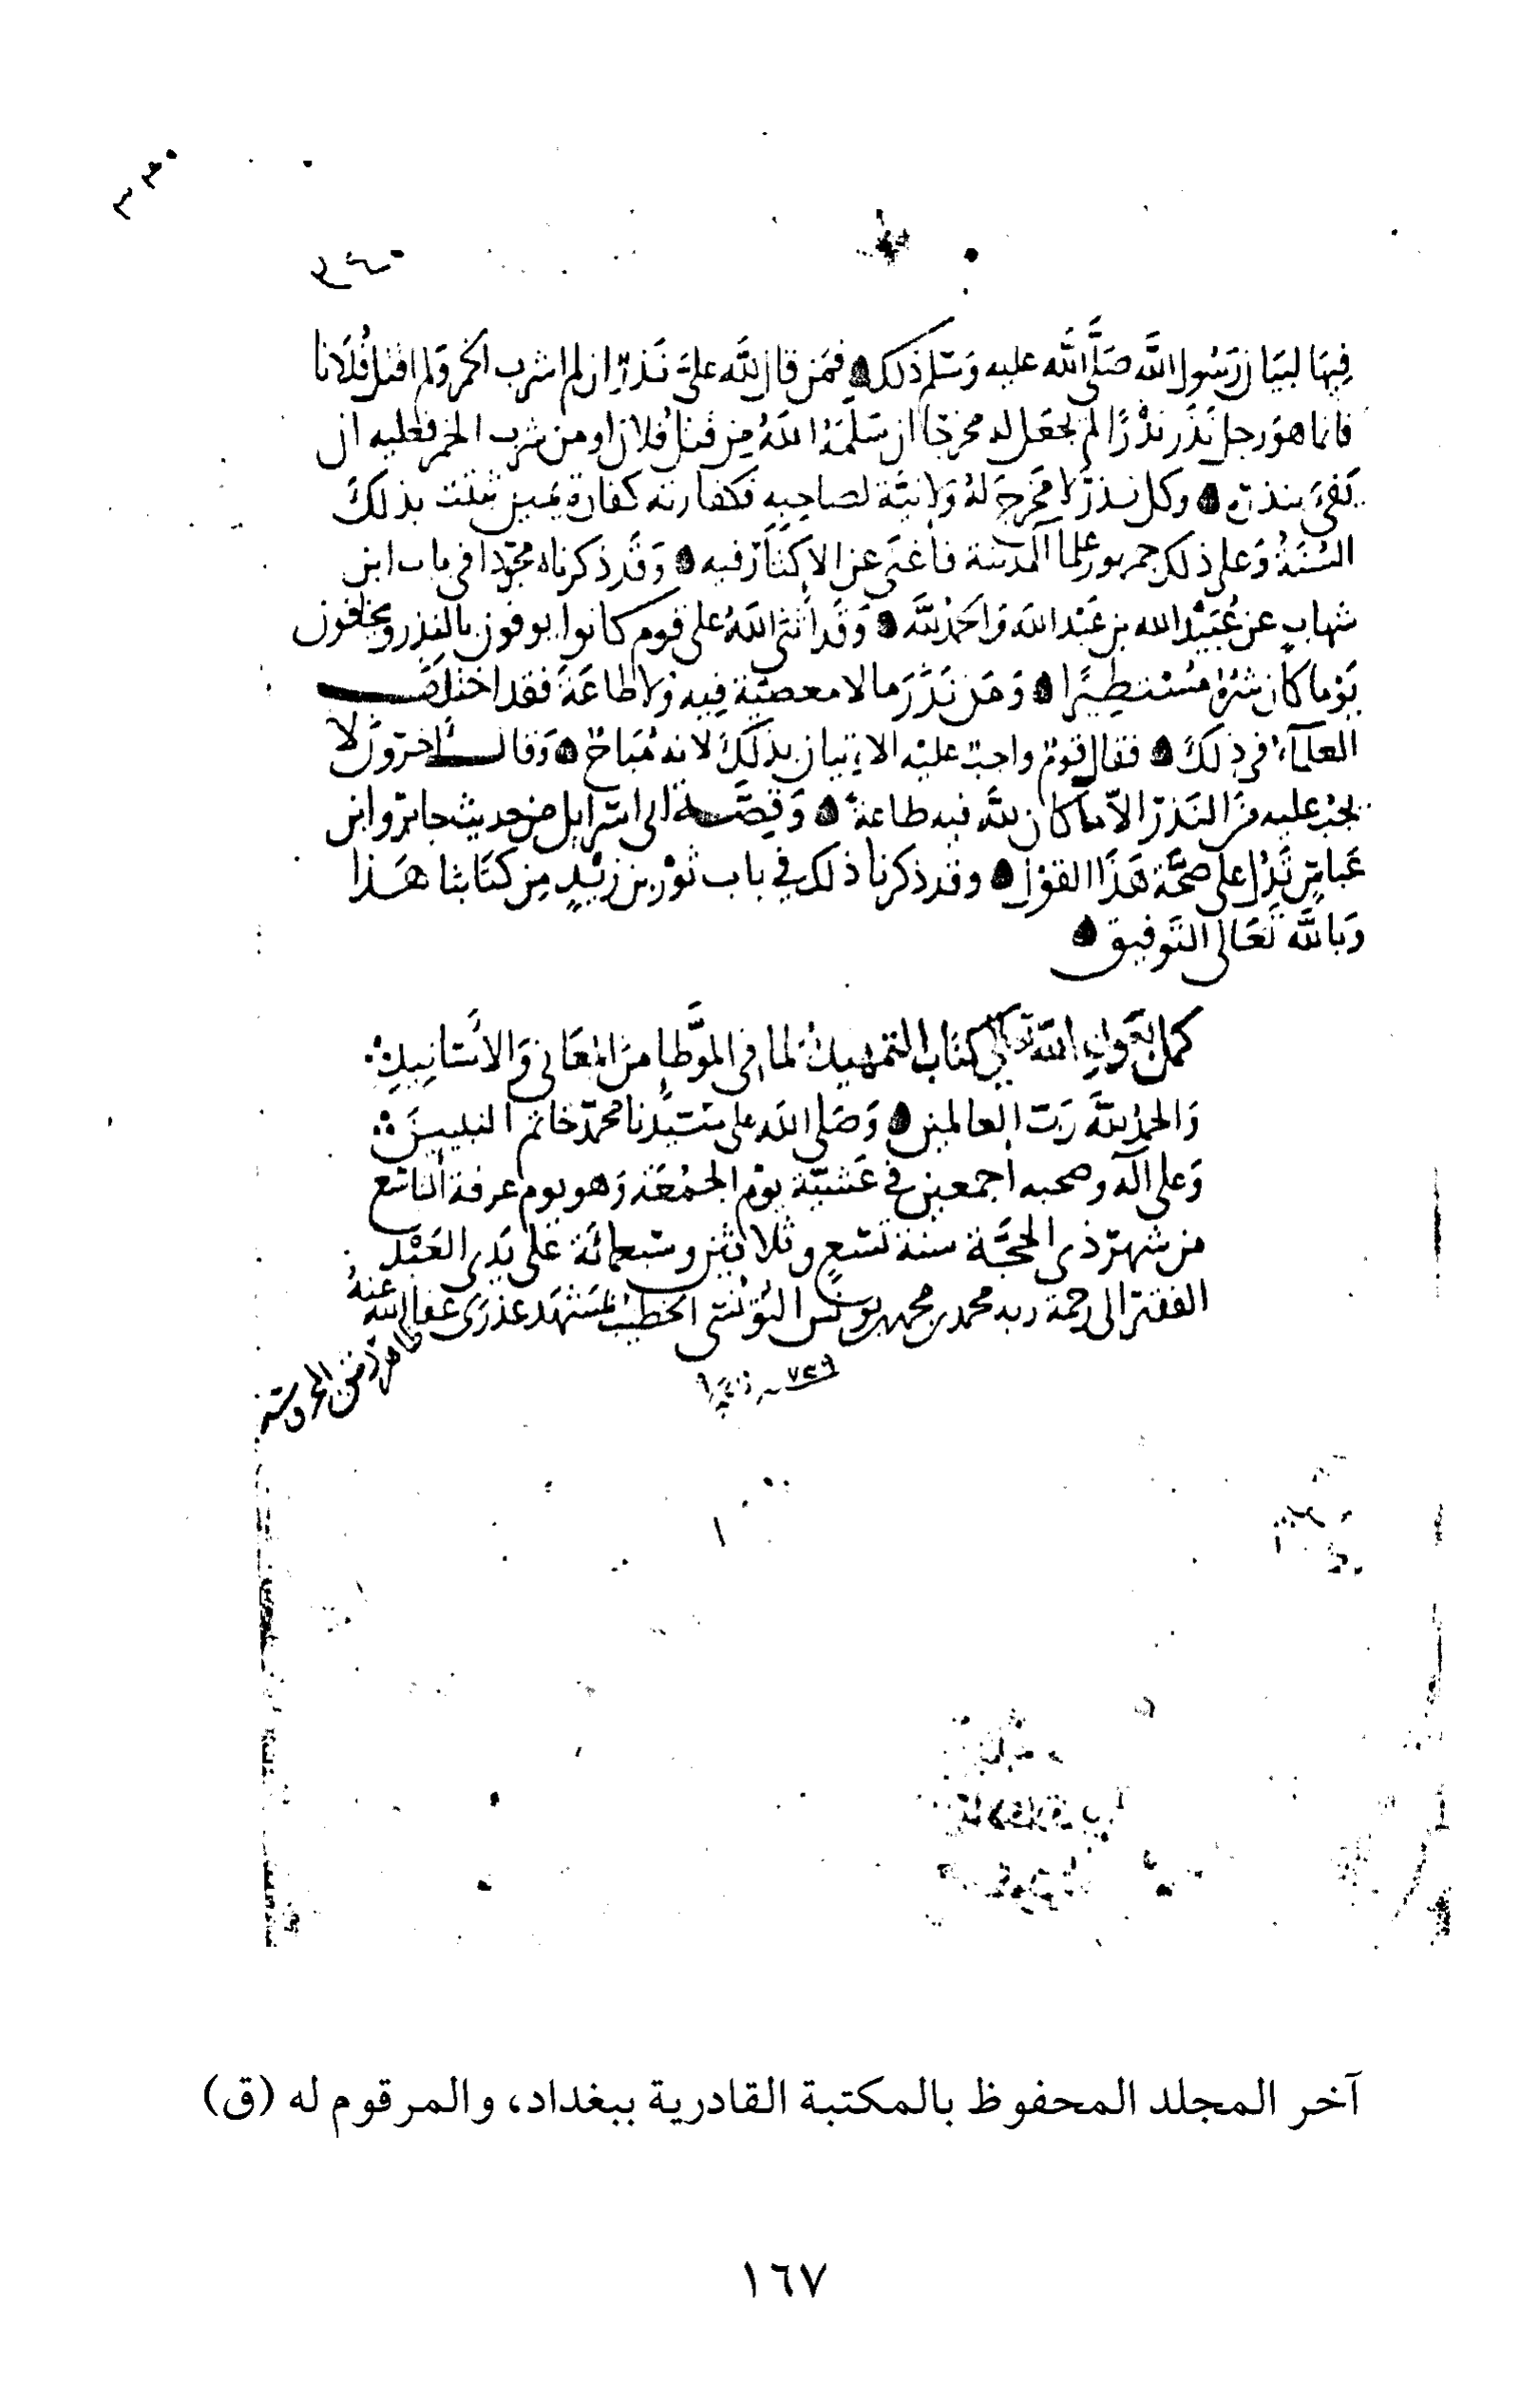 فيها لبيان رسول الله صلَّى الله عليه وسلم ذلك فمن قال لله علي نذر ان لم اشرب الخمر ولم اقتل فلانا
فانما هو رجل نذر نذرًا لم يجعل له مخرجا ان سلمه الله من قتل فلان او من شرب الخمر فعليه ان
يفي بنذره وكل نذر لا مخرج له ولا نية لصاحبه فكفارته كفارة يمين ثبتت بذلك
السنة وعلى ذلك جمهور علما المدينة فاغنى عن الاكثار فيه وقد ذكرناه مجودا في باب ابن
شهاب عن عبيد الله بن عبد الله والحمد لله وقد اثنى الله على قوم كانوا يوفون بالنذر ويخافون
يوما كان شره مستطيرا ومن نذر ما لا معصية فيه ولا طاعة فقد اختلف
العلماء في ذلك فقال قوم واجب عليه الاتيان بذلك لانه مباح وقال اخرون لا
يجب عليه من النذر الا ما كان لله فيه طاعة وقصة ابى اسرايل من حديث جابر وابن
عباس تدل على صحة هذا القول وقد ذكرنا ذلك في باب ثور بن زيد من كتابنا هذا
وبالله تعالى التوفيق
كمل بعون الله تعالى كتاب التمهيد لما في الموطا من المعاني والأسانيد
والحمد لله رب العالمين وصلى الله على سيدنا محمد خاتم النبيين
وعلى آله وصحبه اجمعين في عشية يوم الجمعة وهو يوم عرفة التاسع
من شهر ذي الحجة سنة تسع وثلاثين وسبعمائة على يدي العبد
الفقير الى رحمة ربه محمد بن محمد بن يونس التونسي الخطيب بمشهد عذرى عفا الله عنه
٧٣٩
آخر المجلد المحفوظ بالمكتبة القادرية ببغداد، والمرقوم له (ق)
١٦٧